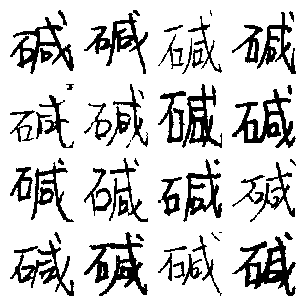 碱碱碱碱
碱碱碱碱
碱碱碱碱
碱碱碱碱